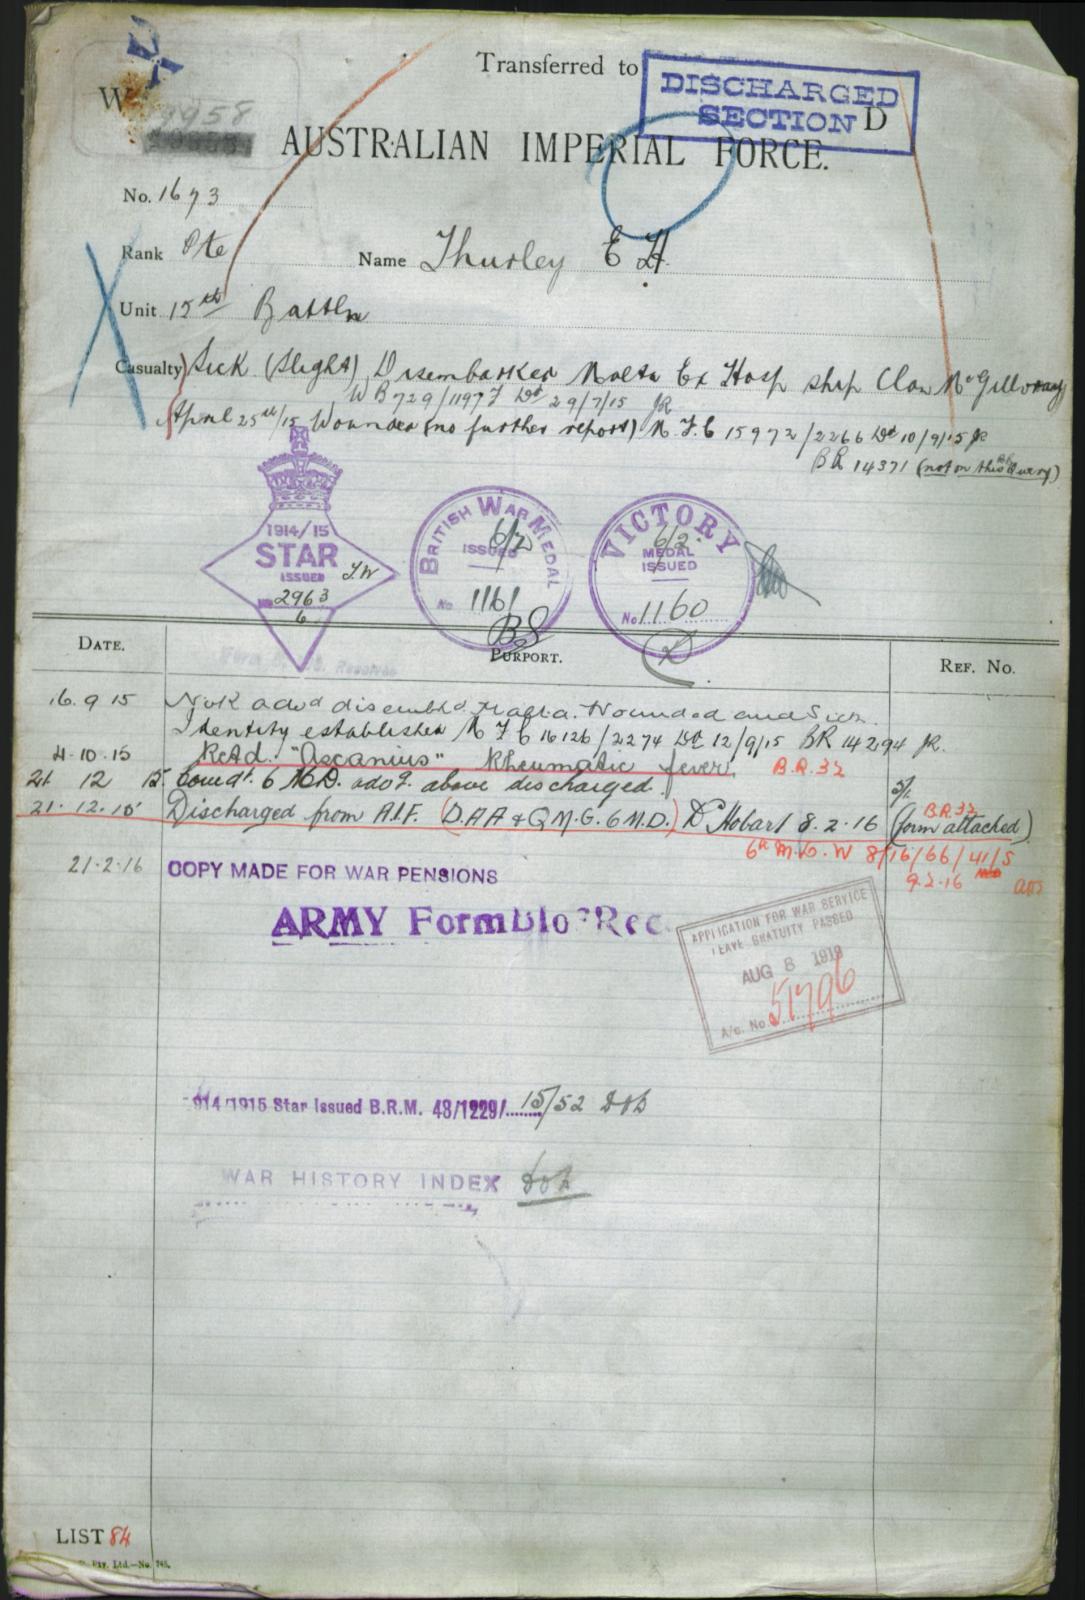 Transferred to
DISCHARGED
SECTION D
W
9958
AUSTRALIAN IMPERIAL FORCE.
No. 1673
Rank Pte Name Thurley E H
Unit 15th Battln
Casualty) Sick (slight) Disembarked Malta Ex Hosp ship Clan McGillvray
WB 729/1197 Dd 29/7/15 JR
April 25th/15 Wounded (no further report) M.F.C 15972/2266 Dd 10/9/15 JR
BR 14371 (not on this Query)
1914/15
STAR
ISSUED J.W
No 2963
6
BRITISH WAR MEDAL
6/2
ISSUED
No 1161
BS
VICTORY
6/2
MEDAL
ISSUED
No 1160
DATE. PURPORT. REF. NO.
16.9.15 N.o.K advd disembkd Malta. Wounded and Sick.
Identity established M F C 16126/2274 Dd 12/9/15 BR 14294 JR.
4-10-15 Retd. "Ascanius" Rheumatic fever. B.R. 32
21 12 15 Comdt. 6 M.D. adv. above discharged
21.12.15 Discharged from A.I.F. (D.A.A & Q.M.G. 6 M.D.) Dd Hobart 8.2.16 (form attached)
B.R. 32
6th M.D. W 8/16/66/41/5
9.2.16
21.2.16 COPY MADE FOR WAR PENSIONS
ARMY Form B103 Rec.
APPLICATION FOR WAR SERVICE
LEAVE GRATUITY PASSED
AUG 8 1919
A/c. No. 51796
1914/1915 Star Issued B.R.M. 48/1229/ 15/52
WAR HISTORY INDEX
LIST 84
Pty. Ltd.—No. 745.